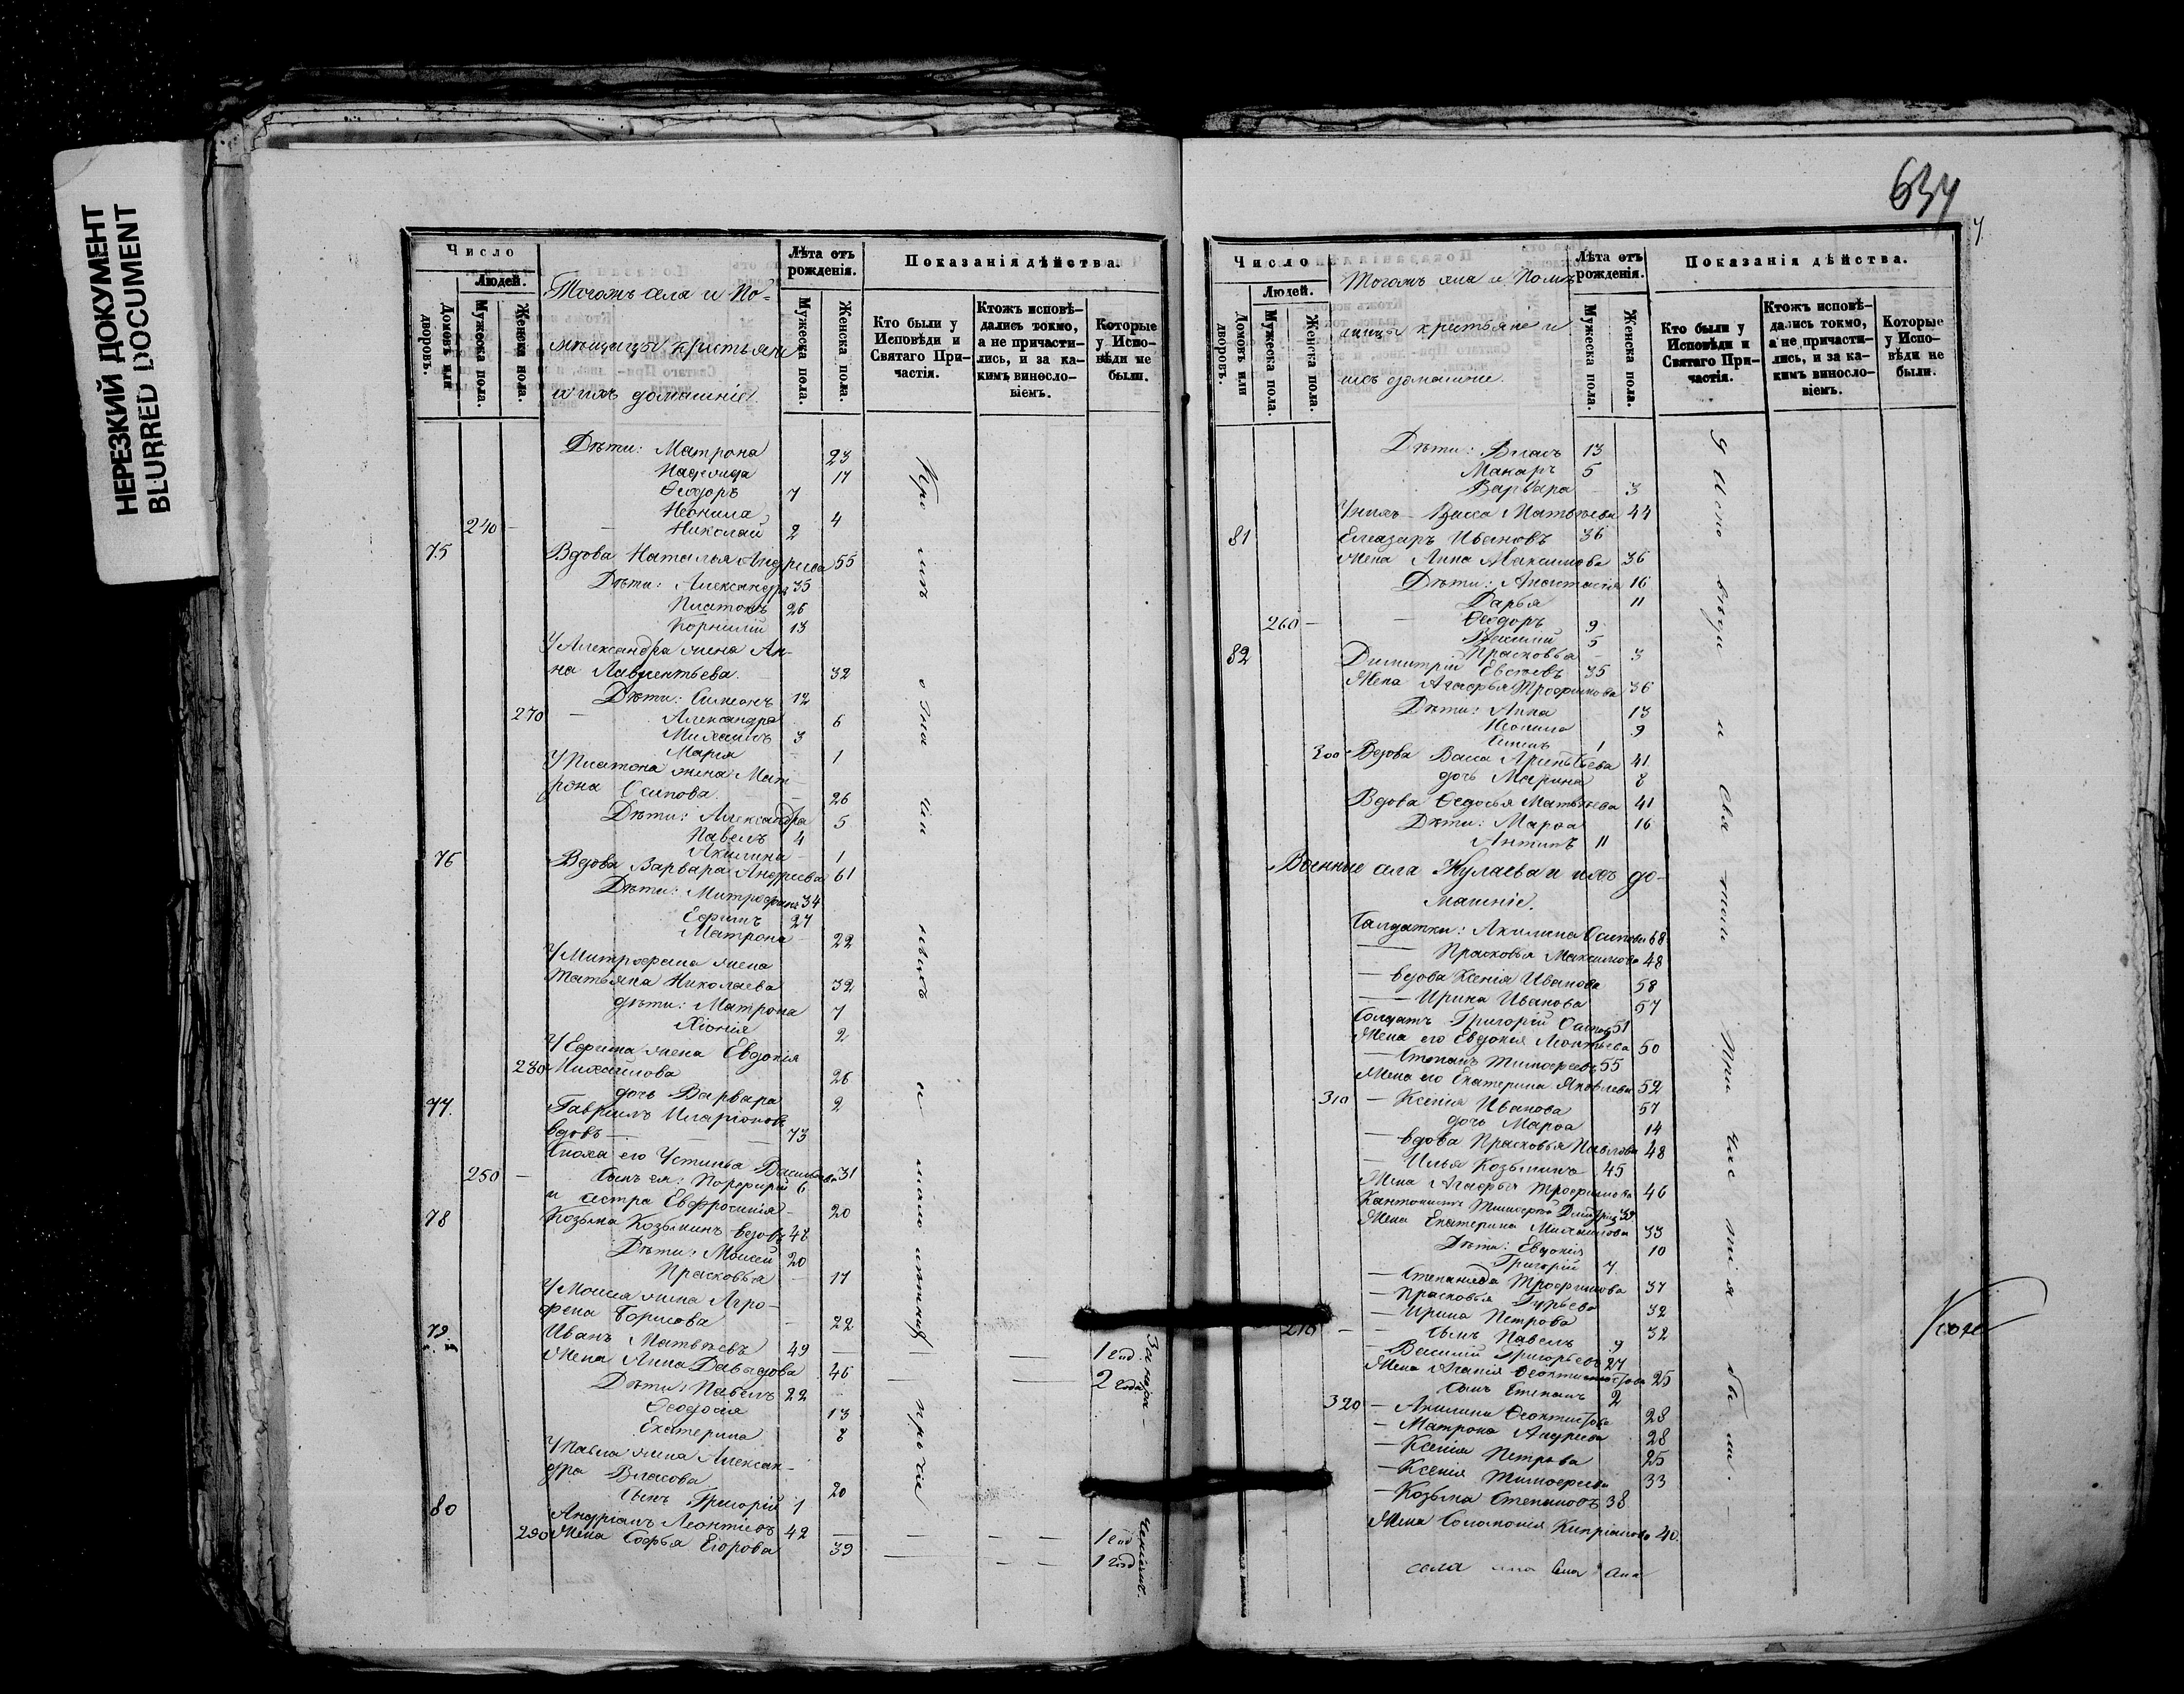 НЕРЕЗКИЙ ДОКУМЕНТ
BLURRED DOCUMENT
Число
Людей.
Домовъ или дворовъ.
Мужеска пола.
Женска пола.
Тогожъ села и По-
мѣщицы крестьяне
и ихъ домашніе.
Лѣта отъ рожденія.
Мужеска пола.
Женска пола.
Показанія дѣйства.
Кто были у Исповѣди и Святаго При-частія.
Ктожъ исповѣ-дались токмо, а не причасти-лись, и за ка-кимъ винносло-віемъ.
Которые у Испо-вѣди не были.
Дѣти: Матрона 23
Надежда 17
Ѳеодоръ 7
Неонила 4
240 Николай 2
75 Вдова Наталья Андреева 55
Дѣти: Александръ 35
Платонъ 26
Корнилій 13
У Александра жена Ан-
на Лаврентьева. 32
Дѣти: Симеонъ 12
270 Александра 6
Михаилъ 3
Марія 1
У Платона жена Мат-
рона Осипова. 26
Дѣти: Александра 5
Павелъ 4
Акилина 1
76 Вдова Варвара Андреева 61
Дѣти: Митрофанъ 34
Ефимъ 27
Матрона 22
У Митрофана жена
Татьяна Николаева 32
дѣти: Матрона 7
Хіонія 2
У Ефима жена Евдокія
280 Михайлова 26
дочь Варвара 2
77. Гавріилъ Иларіоновъ
вдовъ 73
Сноха его Устинья Васильева 31
250 Сынъ ея: Порфирій 6
и сестра Евфросинія 20
78 Козьма Козьминъ вдовъ 48
Дѣти: Моисей 20
Прасковья 17
У Моисея жена Агро-
фена Борисова 22
79. Иванъ Матвѣевъ 49 1 годъ
Жена Анна Давыдова 46 2 года
Дѣти: Павелъ 22
Ѳеодосія 13
Екатерина 8
У Павла жена Алексан-
дра Власова 20
Сынъ Григорій 1
80 Андріанъ Леонтіевъ 42 1 годъ
290 Жена Софья Егорова 39 1 годъ
634
Число
Людей.
Домовъ или дворовъ.
Мужеска пола.
Женска пола.
Тогожъ села и Помѣ-
щицы крестьяне и
ихъ домашніе.
Лѣта отъ рожденія.
Мужеска пола.
Женска пола.
Показанія дѣйства.
Кто были у Исповѣди и Святаго При-частія.
Ктожъ исповѣ-дались токмо, а не причасти-лись, и за ка-кимъ винносло-віемъ.
Которые у Испо-вѣди не были.
Дѣти: Власъ 13
Макаръ 5
Варвара 3
У нихъ Васса Матвѣева 44
81 Елеазаръ Ивановъ 36
Жена Анна Максимова 36
Дѣти: Анастасія 16
Дарья 11
260 Ѳеодоръ 9
Василій 5
Прасковья 3
82 Димитрій Евсеевъ 35
Жена Агафья Трофимова 36
Дѣти: Анна 13
Неонила 9
1
300 Вдова Васса 41
дочь Марина 8
Вдова Ѳедосья Матвѣева 41
Дѣти: Марѳа 16
Антипъ 11
Военные села и ихъ до-
машніе.
Солдатки: Акилина Осипова 68
Прасковья Максимова 48
вдова Ксенія Иванова 58
Ирина Иванова 57
Солдатъ Григорій Осиповъ 51
Жена его Евдокія Леонтьева 50
Степанъ Тимофеевъ 55
Жена его Екатерина Яковлева 52
310 Ксенія Иванова 57
дочь Марѳа 14
вдова Прасковья Павлова 48
Илья Козьминъ 45
Жена Агафья Трофимова 46
Кантонистъ Тимофей 39
Жена Екатерина Михайлова 33
Дѣти: Евдокія 10
Григорій 7
Степанида Трофимова 37
Прасковья Гурьева 32
Ирина Петрова 32
270 сынъ Павелъ 9
Василій Григорьевъ 27
Жена Агапія Ѳеоктистова 25
сынъ Степанъ 2
320 Акилина Ѳеоктистова 28
Матрона Андреева 28
Ксенія Петрова 25
Ксенія Тимофеева 33
Козьма Степановъ 38
Жена Соломонія Кипріанова 40.